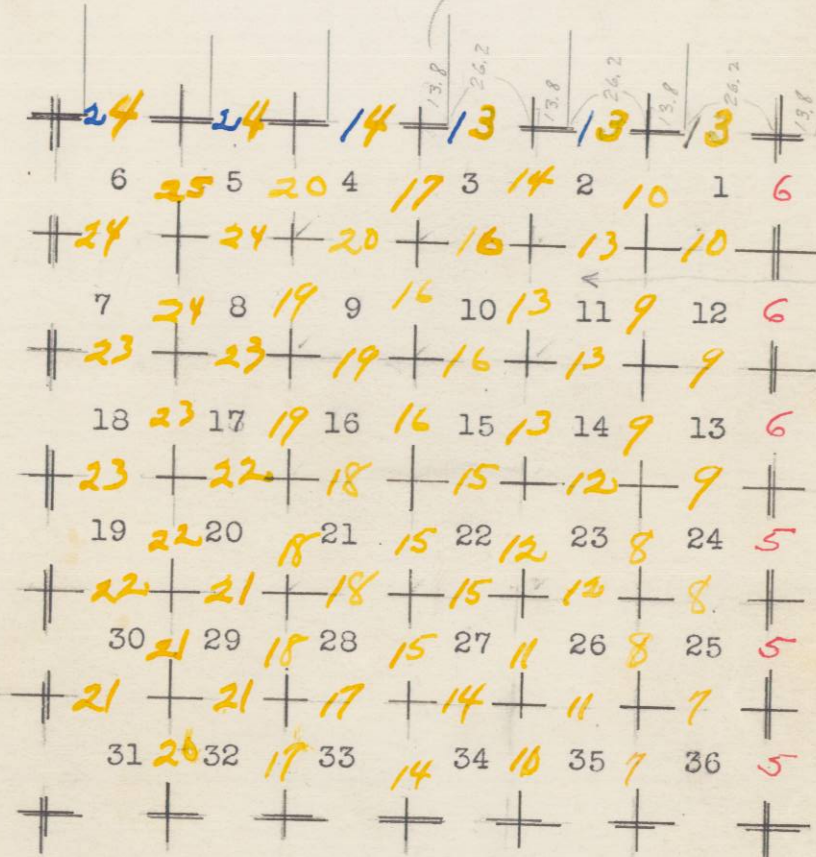 13.8 26.2 13.8 26.2 13.8 26.2 13.8
24 24 14 13 13 13
6 25 5 20 4 17 3 14 2 10 1 6
24 24 20 16 13 10
7 24 8 19 9 16 10 13 11 9 12 6
23 23 19 16 13 9
18 23 17 19 16 16 15 13 14 9 13 6
23 22 18 15 12 9
19 22 20 18 21 15 22 12 23 8 24 5
22 21 18 15 12 8
30 21 29 18 28 15 27 11 26 8 25 5
21 21 17 14 11 7
31 20 32 17 33 14 34 10 35 7 36 5